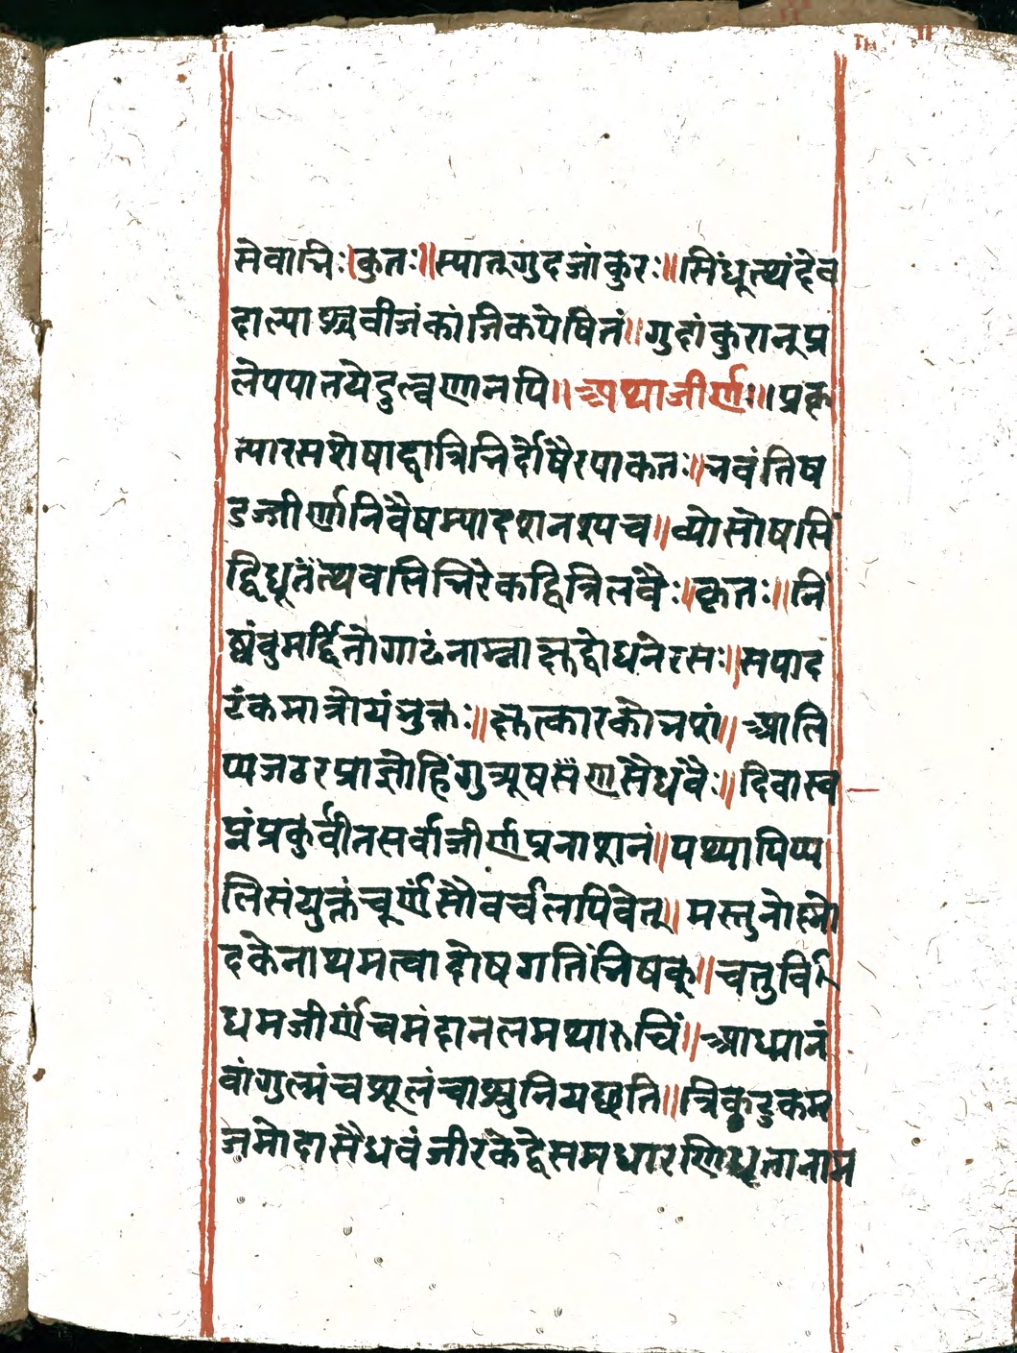 सेवाभिः।कुतः॥स्यात्गुदजांकुरः॥सिंधूत्थंदेव
दाल्याश्चवीजंकांजिकपेषितं॥गुदांकुरान्प्र
लेपपातयेदुल्वणानपि॥अथाजीर्णः॥।प्रकृ
त्यारसशेषाद्वात्रिभिर्दोषैरपाकतः॥भवंतिष
डजीर्णानिवैषम्यादशनस्यच॥व्योसोषसिं
द्विधूतंत्थवलिभिरेकद्वित्रिलवैः॥कृतः॥निं
ष्वंवुमर्द्दितोगाढंनाम्नाक्षुद्बोधनेरसः॥सपाद
टंकमात्रोयंभुक्तः॥क्षुत्कारकोभृशं॥आलि
प्यजठरंप्राज्ञोहिंगुत्र्यूषसैणसैधवैः॥दिवास्व
प्नंप्रकुर्वीतसर्वाजीर्णप्रनाशनं॥पथ्यापिप्प
लिसंयुक्तंचूर्णंसौवर्चलंपिवेत्॥मस्तुनोह्नो
दकेनाथमत्वादोषगतिंभिषक्॥चतुर्वि
धमजीर्णंचमंदानलमथारुचिं॥आध्मानं
वांगुल्मंचशूलंचाश्रुनियछति॥त्रिकटुकम
जमोदासैधवंजीरकेद्वेसमधारणिधृतानाम